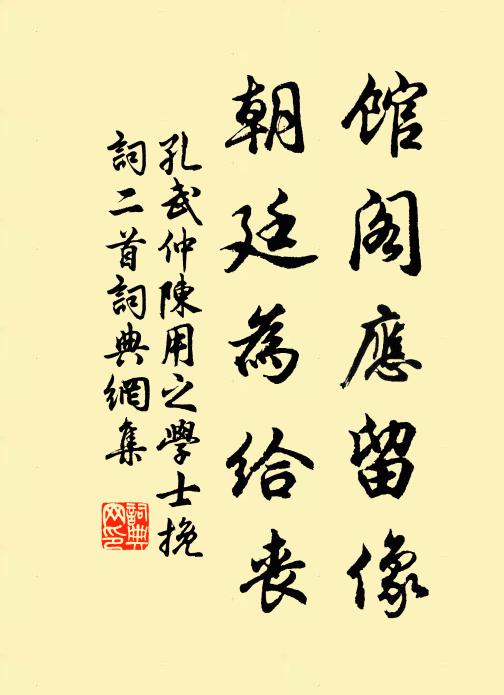 館閣應留像
朝廷為給喪
孔武仲陳用之學士挽
詞二首詞典網集
詞典
网印